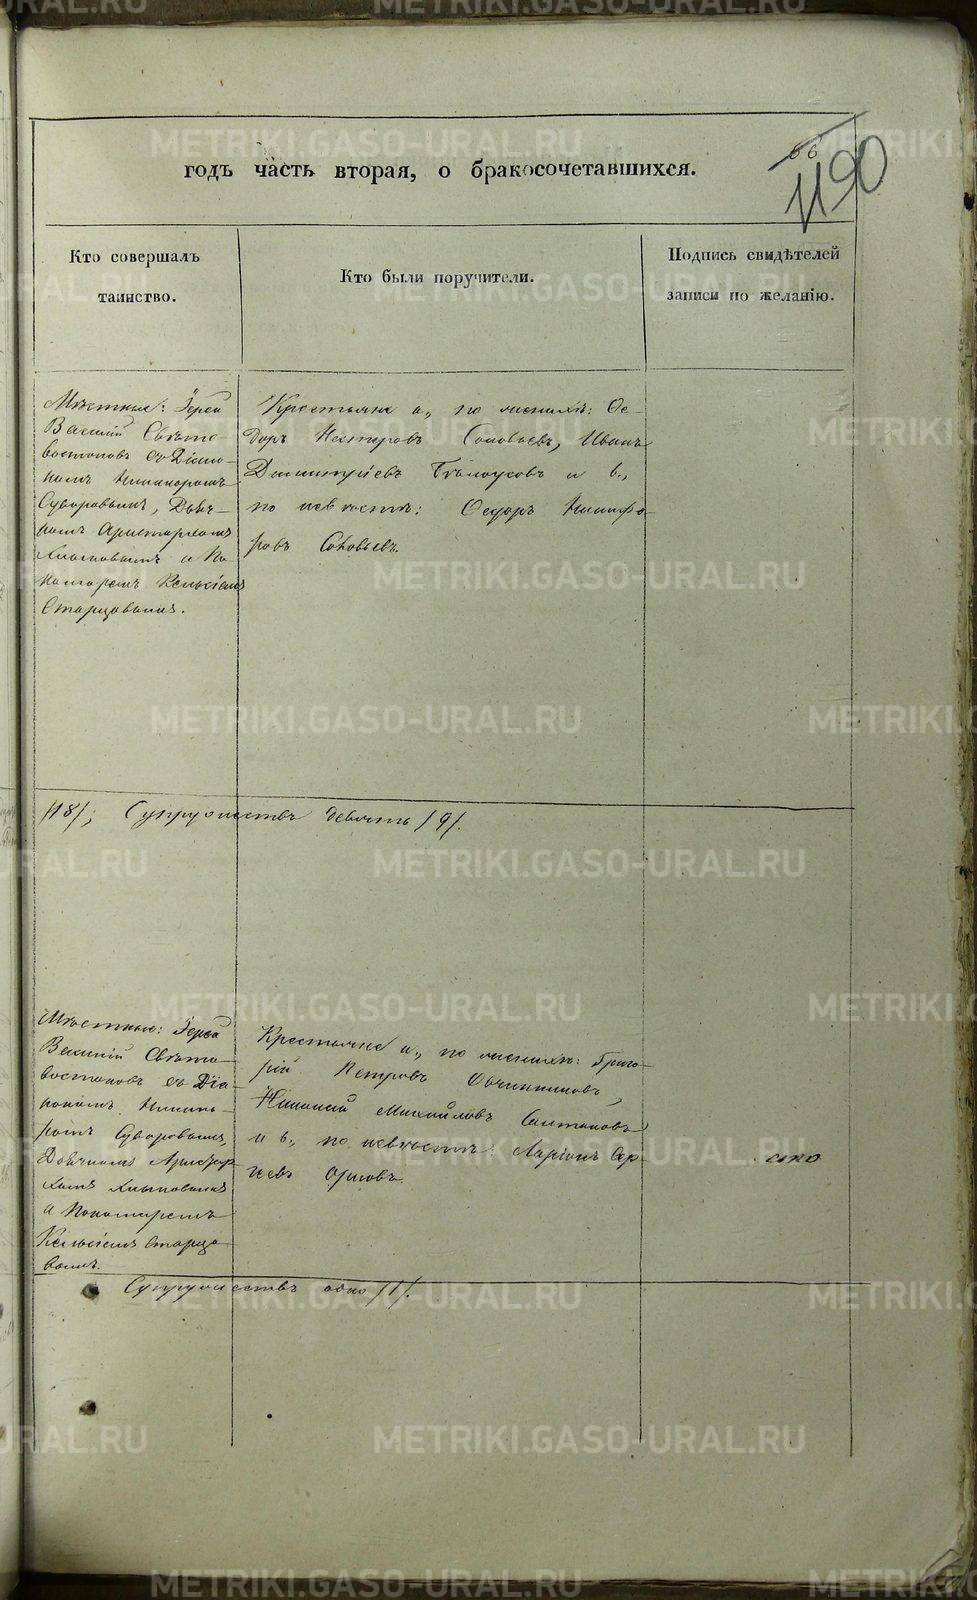 66
1190
годъ часть вторая, о бракосочетавшихся.
Кто совершалъ
таинство.
Кто были поручители.
Подпись свидѣтелей
записи по желанію.
Мѣстные: Іерей
Василій Свѣто-
востоковъ съ Діако-
номъ Никаноромъ
Суворовымъ, Дьяч-
комъ Аристархомъ
Хлыновымъ и По
номаремъ Кельсіемъ
Старцовымъ.
Крестьяне а., по женихѣ: Ѳе-
доръ Нестеровъ Соловьевъ, Иванъ
Димитріевъ Бѣлоусовъ и б.,
по невѣстѣ: Ѳедоръ Никифо-
ровъ Соловьевъ.
/18/; Супружествъ девять /9/.
Мѣстные: Іерей
Василій Свѣто-
востоковъ съ Діа-
кономъ Никано-
ромъ Суворовымъ,
Дьячкомъ Аристар
хомъ Хлыновымъ
и Пономаремъ
Кельсіемъ Старцо
вымъ.
Крестьяне а., по женихѣ: Григо-
рій Петровъ Овчинниковъ,
Михайловъ
и б., по невѣстѣ: Ларіонъ Сер-
геевъ Орловъ.
Супружествъ одно /1/.
METRIKI.GASO-URAL.RU